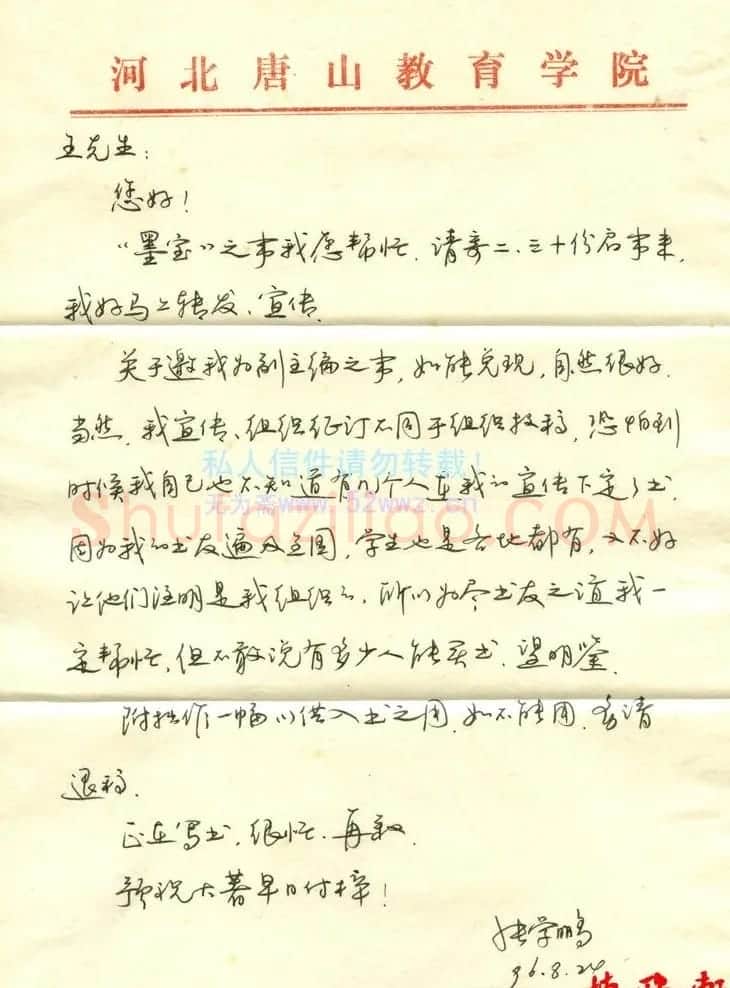 河北唐山教育学院
王先生：
您好！
“墨宝”之事我愿帮忙．请寄二、三十份启事来，
我好马上转发、宣传．
关于邀我为副主编之事，如能兑现，自然很好．
当然，我宣传、组织征订不同于组织投稿，恐怕到
私人信件请勿转载！
时候我自己也不知道有几个人在我的宣传下定了书．
无为斋www.52wwz.cn
Shufaziliao.COM
因为我的书友遍及全国，学生也是各地都有，又不好
让他们注明是我组织的．所以为尽书友之道我一
定帮忙，但不敢说有多少人能买书．望明鉴．
附拙作一幅以供入书之用．如不能用，务请
退稿．
正在写书，很忙．再叙．
预祝大著早日付梓！
张学鹏
96.8.24